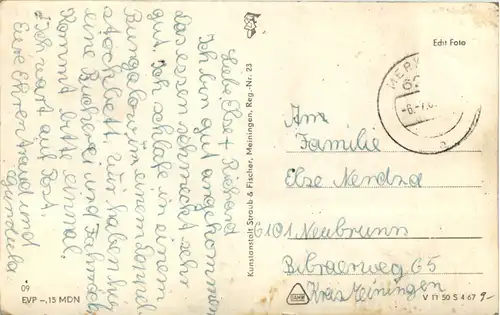 Liebe Else + Richard
Ich bin gut angekommen
das essen schmeckt sehr
gut. Ich schlafe in einem
Bungalow in einem Doppel
stockbett. Wir haben hier
eine Bücherei und Fahrräder
Kommt bitte einmal.
Ich wart auf Post.
Eure Ehrentraud und
Gundula
09
EVP -,15 MDN
Kunstanstalt Straub & Fischer, Meiningen, Reg.-Nr. 23
Echt Foto
An
Familie
Else Nendza
6101 Neubrunn
Bibraerweg 65
Kreis Meiningen
V 11 50 S 4 67